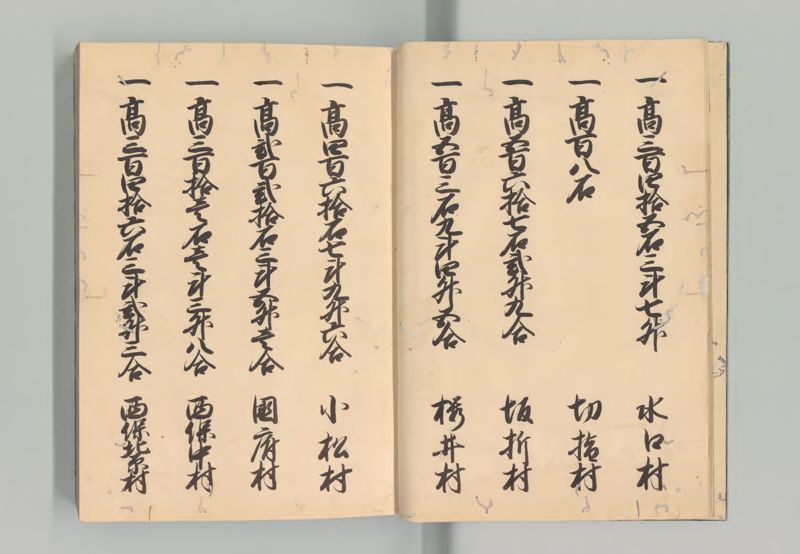 一高三百四拾五石三斗七升 水口村
一高百八石 切捨村
一高五百六拾七石弐升九合 坂折村
一高五百三石九斗四升五合 桜井村
一高四百六拾石七斗九升六合 小松村
一高弐百弐拾石三斗五升壱合 國府村
一高三百拾壱石壱斗三升八合 西保中村
一高三百四拾六石三斗弐升三合 西保北原村